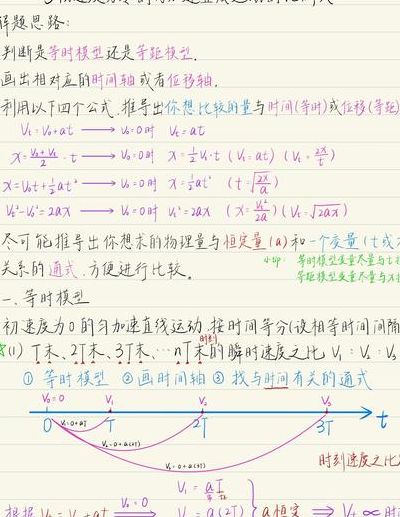 解题思路:
判断是等时模型还是等距模型.
画出相对应的时间轴或者位移轴.
利用以下四个公式.推导出你想比较的量与时间(等时)或位移(等距)
Vt=V₀+at ⟶ V₀=0时 Vt=at
x=(V₀+Vt)/2·t ⟶ V₀=0时 x=½Vt·t (Vt=at) (Vt=2x/t)
x=V₀t+½at² ⟶ V₀=0时 x=½at² (t=√(2x/a))
Vt²-V₀²=2ax ⟶ V₀=0时 Vt²=2ax (x=Vt²/2a) (Vt=√(2ax))
尽可能推导出你想求的物理量与恒定量(a)和一个变量(t或
关系的通式.方便进行比较.
等时模型变量尽量与t
等距模型变量尽量与x
一、等时模型
初速度为0的匀加速直线运动.按时间等分(设相等时间间隔
时刻
(1) T末、2T末、3T末、…nT末的瞬时速度之比 V₁:V₂:V₃
① 等时模型 ②画时间轴 ③ 找与时间有关的通式
V₀=0 V₁ V₂ V₃
0 T 2T 3T t
V₁=0+aT
V₂=0+a(2T)
V₃=0+a(3T)
时刻速度之比
V₁=aT
根据 Vt=V₀+at V₀=0 ⟹ V₂=a(2T) } a恒定 ⟹ Vt∝时